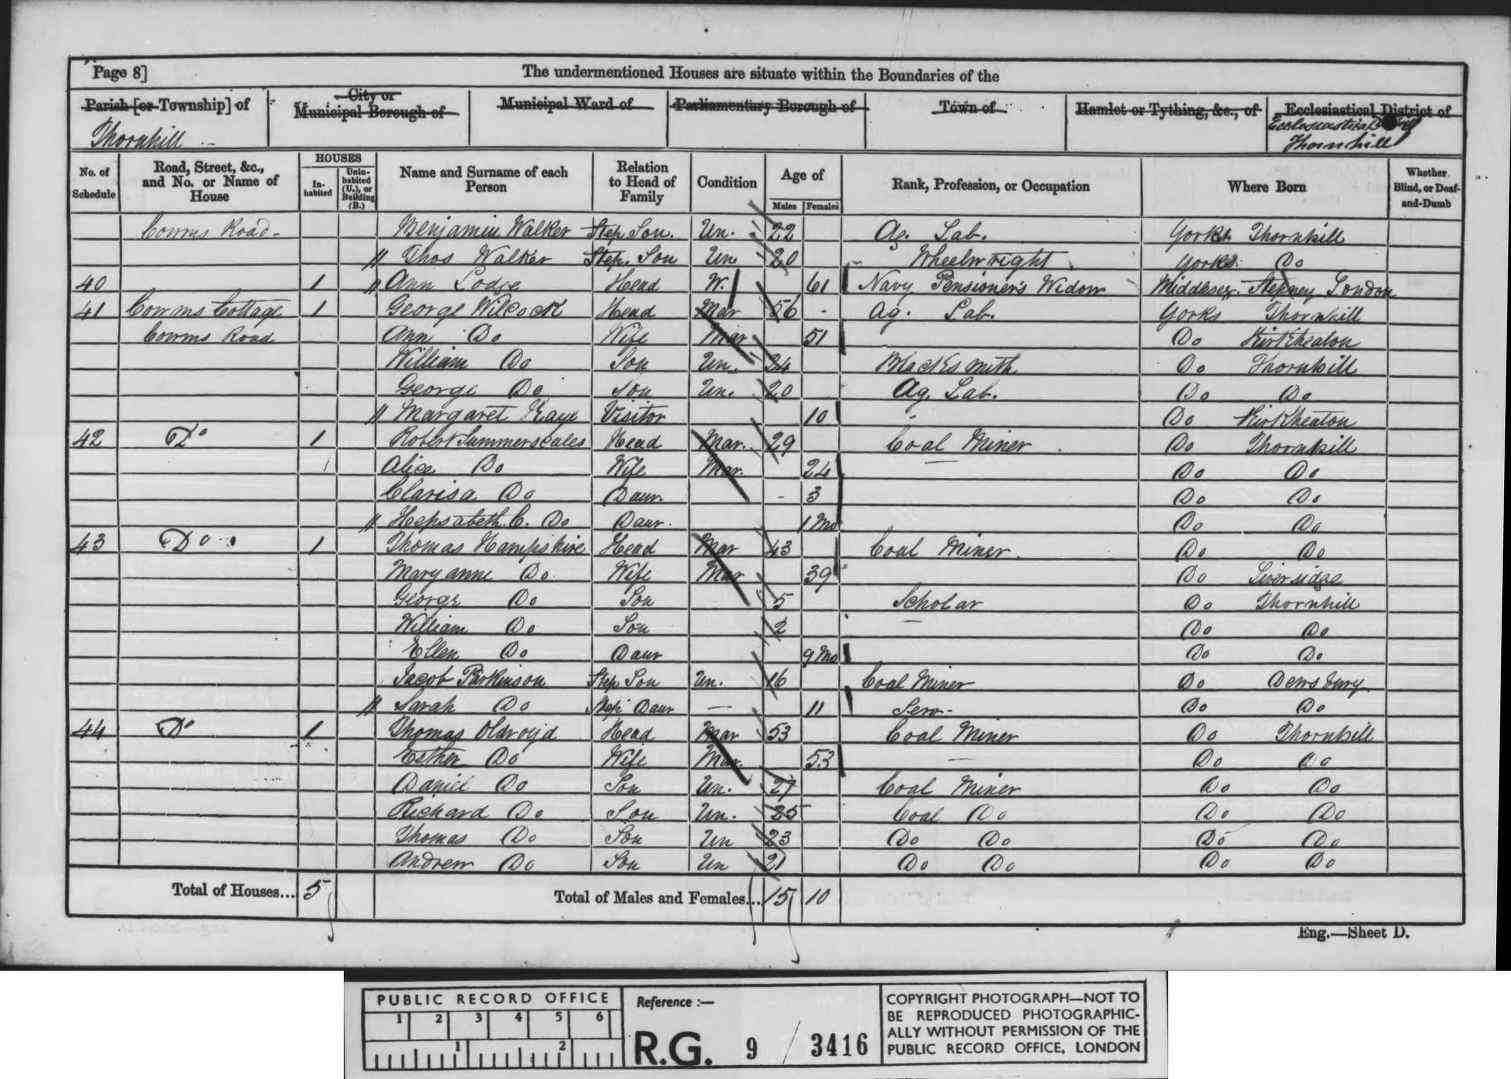 Page 8]
The undermentioned Houses are situate within the Boundaries of the
Parish [or Township] of
City or Municipal Borough of
Municipal Ward of
Parliamentary Borough of
Town of
Hamlet or Tything, &c., of
Ecclesiastical District of
Thornhill
Thornhill
No. of Schedule
Road, Street, &c., and No. or Name of House
HOUSES
In-habited
Unin-habited (U.), or Building (B.)
Name and Surname of each Person
Relation to Head of Family
Condition
Age of
Males
Females
Rank, Profession, or Occupation
Where Born
Whether Blind, or Deaf-and-Dumb
Cowms Road Benjamin Walker Step Son. Un. 22 Ag. Lab. Yorks Thornhill
Thos Walker Step. Son Un 20 Wheelwright Yorks. Do
40 1 Ann Lodge Head W. 61 Navy Pensioner's Widow Middlesex Stepney London
41 Cowms Cottage 1 George Wilcock Head Mar 56 Ag. Lab. Yorks Thornhill
Cowms Road Ann Do Wife Mar 51 Do Kirkheaton
William Do Son Un. 24 Blacksmith Do Thornhill
George Do Son Un. 20 Ag. Lab. Do Do
Margaret Kaye Visitor 10 Do Kirkheaton
42 Do 1 Robert Summerscales Head Mar. 29 Coal Miner Do Thornhill
Alice Do Wife Mar. 24 Do Do
Clarisa Do Daur. 3 Do Do
Hepsabeth C. Do Daur. 1 Mo Do Do
43 Do 1 Thomas Hampshire Head Mar 43 Coal Miner. Do Do
Mary anne Do Wife Mar 39 Do Liversidge
George Do Son 5 Scholar Do Thornhill
William Do Son 2 Do Do
Ellen Do Daur 9 Mo Do Do
Jacob Parkinson Step Son Un. 16 Coal Miner Do Dewsbury
Sarah Do Step Daur — 11 Serv- Do Do
44 Do 1 Thomas Oldroyd Head Mar 53 Coal Miner Do Thornhill
Esther Do Wife Mar. 53 Do Do
Daniel Do Son Un. 27 Coal Miner Do Do
Richard Do Son Un. 25 Coal Do Do Do
Thomas Do Son Un 23 Do Do Do Do
Andrew Do Son Un 21 Do Do Do Do
Total of Houses... 5
Total of Males and Females... 15 10
Eng.—Sheet D.
PUBLIC RECORD OFFICE
1 2 3 4 5 6
1 2
Reference :—
R.G. 9 / 3416
COPYRIGHT PHOTOGRAPH—NOT TO
BE REPRODUCED PHOTOGRAPHIC-
ALLY WITHOUT PERMISSION OF THE
PUBLIC RECORD OFFICE, LONDON